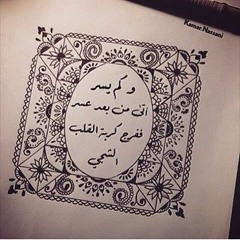 Kamar.Nassani
وكم يسر
اتى من بعد عسر
ففرج كربة القلب
الشجي